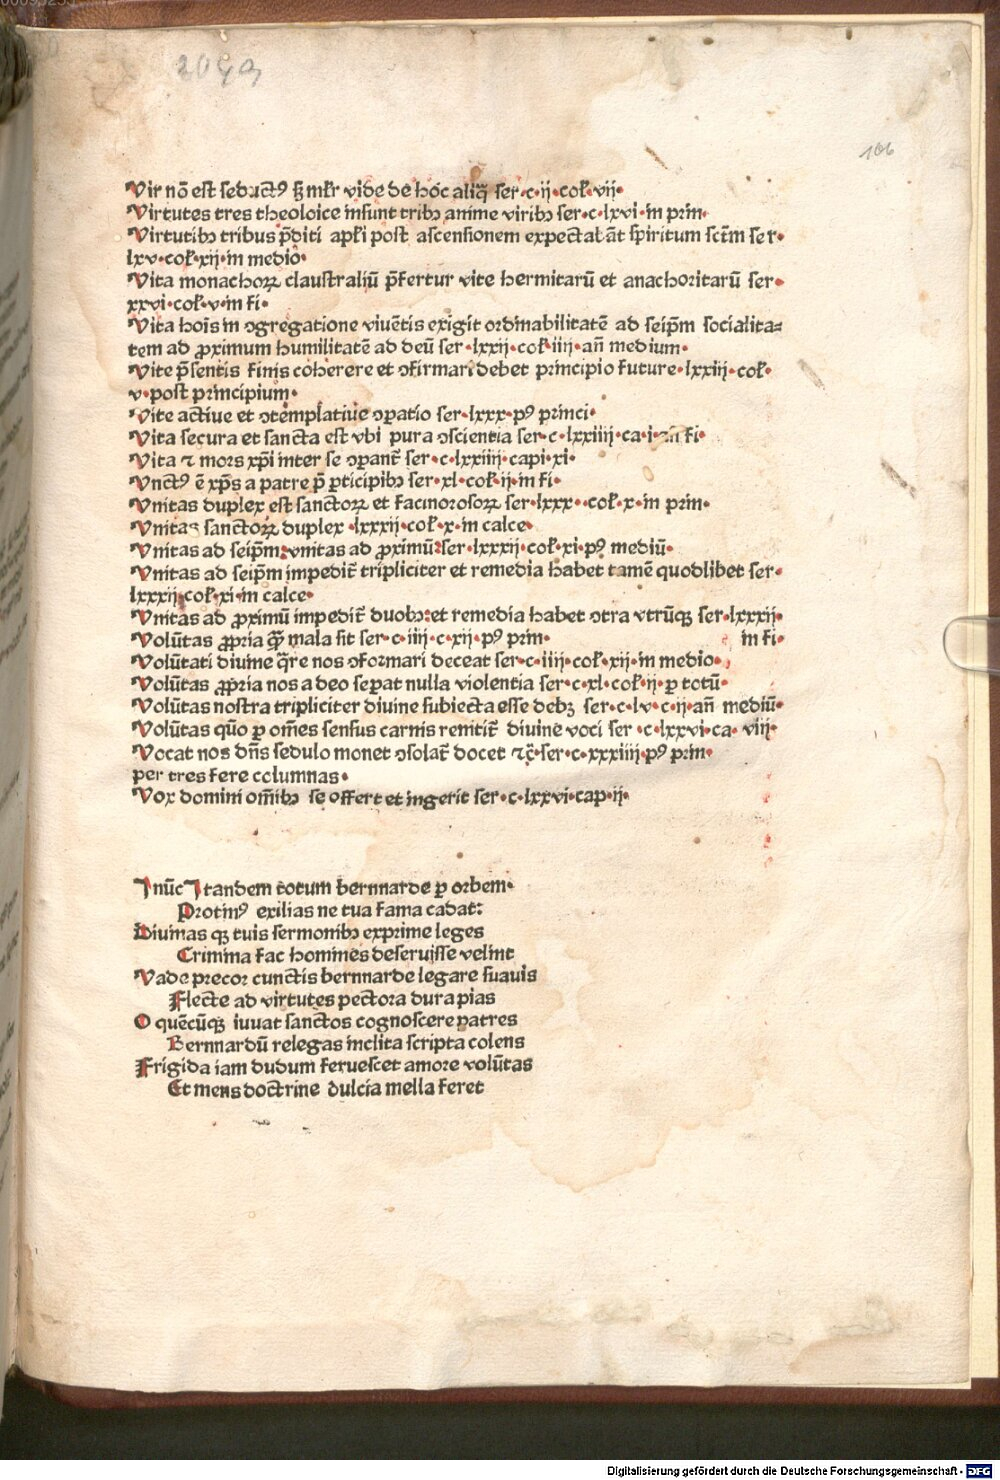 2043
106
Vir nō est seductꝰ sꝫ mlr̄ vide de hoc aliq̄ ser·c·ii·col̄·vii·
Virtutes tres theoloice insunt tribꝫ anime viribꝫ ser·c·lxvi·in prin·
Virtutibꝫ tribus p̄diti apl̄i post ascensionem expectabāt spiritum sct̄m ser·
lxv·col̄·xii·in medio·
Vita monachoꝝ claustraliū p̄fertur vite hermitarū et anachoritarū ser·
xxvi·col̄·v·in fi·
Vita hoīs in ꝯgregatione viuētis exigit ordinabilitatē ad seip̄m socialita⸗
tem ad ꝓximum humilitatē ad deū ser·lxxii·col̄·iiii·an̄ medium·
Vite p̄sentis finis coherere et ꝯfirmari debet principio future·lxxiii·col̄·
v·post principium·
Vite actiue et ꝯtemplatiue ꝯꝑatio ser·lxxx·pꝰ princi·
Vita secura et sancta est vbi pura ꝯscientia ser·c·lxxiiii·ca·i·in fi·
Vita ⁊ mors xp̄i inter se ꝯꝑant̄ ser·c·lxxiiii·capi·xi·
Vnctꝰ ē xp̄s a patre p̄ ꝑticipibꝫ ser·xl·col̄·ii·in fi·
Vnitas duplex est sanctoꝝ et facinorosoꝝ ser·lxxx·col̄·x·in prin·
Vnitas sanctoꝝ duplex·lxxxii·col̄·x·in calce·
Vnitas ad seip̄m:vnitas ad ꝓximū:ser·lxxxii·col̄·xi·pꝰ mediū·
Vnitas ad seip̄m impedit̄ tripliciter et remedia habet tamē quodlibet ser·
lxxxii·col̄·xi·in calce·
Vnitas ad ꝓximū impedit̄ duobꝫ:et remedia habet ꝯtra vtrūqꝫ ser·lxxxii·
Volūtas ꝓpria qꝫ̄ mala sit ser·c·iiii·c·xii·pꝰ prin· in fi·
Volūtati diuine q̄re nos ꝯformari deceat ser·c·iiii·col̄·xii·in medio·
Volūtas ꝓpria nos a deo seꝑat nulla violentia ser·c·xl·col̄·ii·ꝑ totū·
Volūtas nostra tripliciter diuine subiecta esse debꝫ ser·c·lv·c·ii·an̄ mediū·
Volūtas quō ꝑ om̄es sensus carnis renitit̄ diuine voci ser·c·lxxvi·ca·viii·
Vocat nos dn̄s sedulo monet ꝯsolat̄ docet ⁊c̄·ser·c·xxxiiii·pꝰ prin·
per tres fere columnas·
Vox domini om̄ibꝫ se offert et ingerit ser·c·lxxvi·cap·ii·
I nūc I tandem totum bernnarde ꝑ orbem·
Protinꝰ exilias ne tua fama cadat:
Diuinas qꝫ tuis sermonibꝫ exprime leges
Crimina fac homines deseruisse velint
Vade precor cunctis bernnarde legare suauis
Flecte ad virtutes pectora dura pias
O quēcūqꝫ iuuat sanctos cognoscere patres
Bernnardū relegas inclita scripta colens
Frigida iam dudum feruescet amore volūtas
Et mens doctrine dulcia mella feret
Digitalisierung gefördert durch die Deutsche Forschungsgemeinschaft - DFG